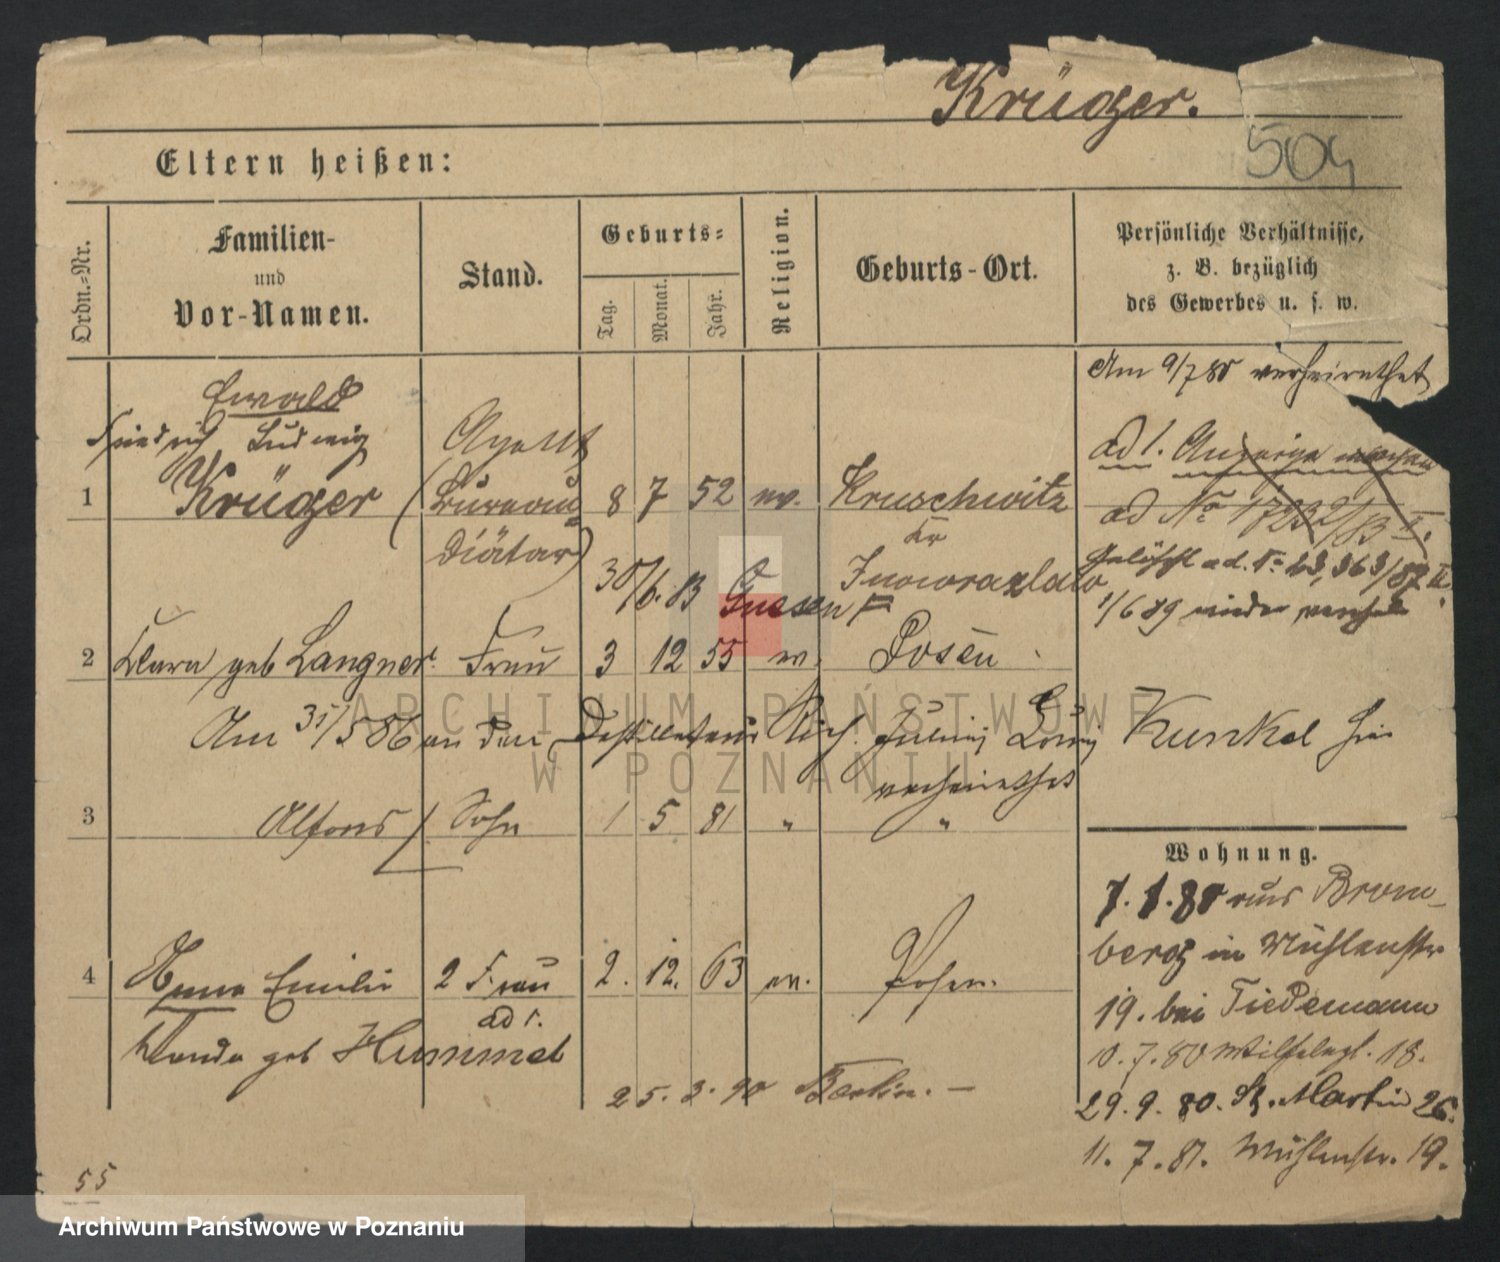 Krüger.
504
Eltern heißen:
Ordn.-Nr.
Familien-
und
Vor-Namen.
Stand.
Geburts-
Tag.
Monat.
Jahr.
Religion.
Geburts-Ort.
Persönliche Verhältnisse,
z. B. bezüglich
des Gewerbes u. s. w.
Am 9/7 80 verheirathet
Ewald
Friedrich Ludwig
Agent
ad 1. Anzeige machen
1 Krüger (Bureau 8 7 52 ev. Kruschwitz
Diätar)
Kr
Inowrazlaw
ad No
Gelöscht ad. 363/87 II.
30/6. 83 Gnesen
1/6 89 wieder
2 Clara geb Langner. Frau 3 12 55 ev. Posen
Am 31/5 86 an den Destillateur Rich. Julius Kunkel hier
verheirathet
3 Alfons Sohn 1 5 81 " "
Wohnung.
7. 1. 80 aus Brom-
berg in Mühlenstr
19. bei Tiedemann
4 Anna Emilie 2 Frau 2. 12. 63 ev. Posen.
ad 1.
Wanda geb Hummel
10. 7. 80 Wilhelmpl. 18.
25. 3. 90 Berlin. —
29. 9. 80. St. Martin 26.
11. 7. 81. Mühlenstr. 19.
55
ARCHIWUM PAŃSTWOWE
W POZNANIU
Archiwum Państwowe w Poznaniu